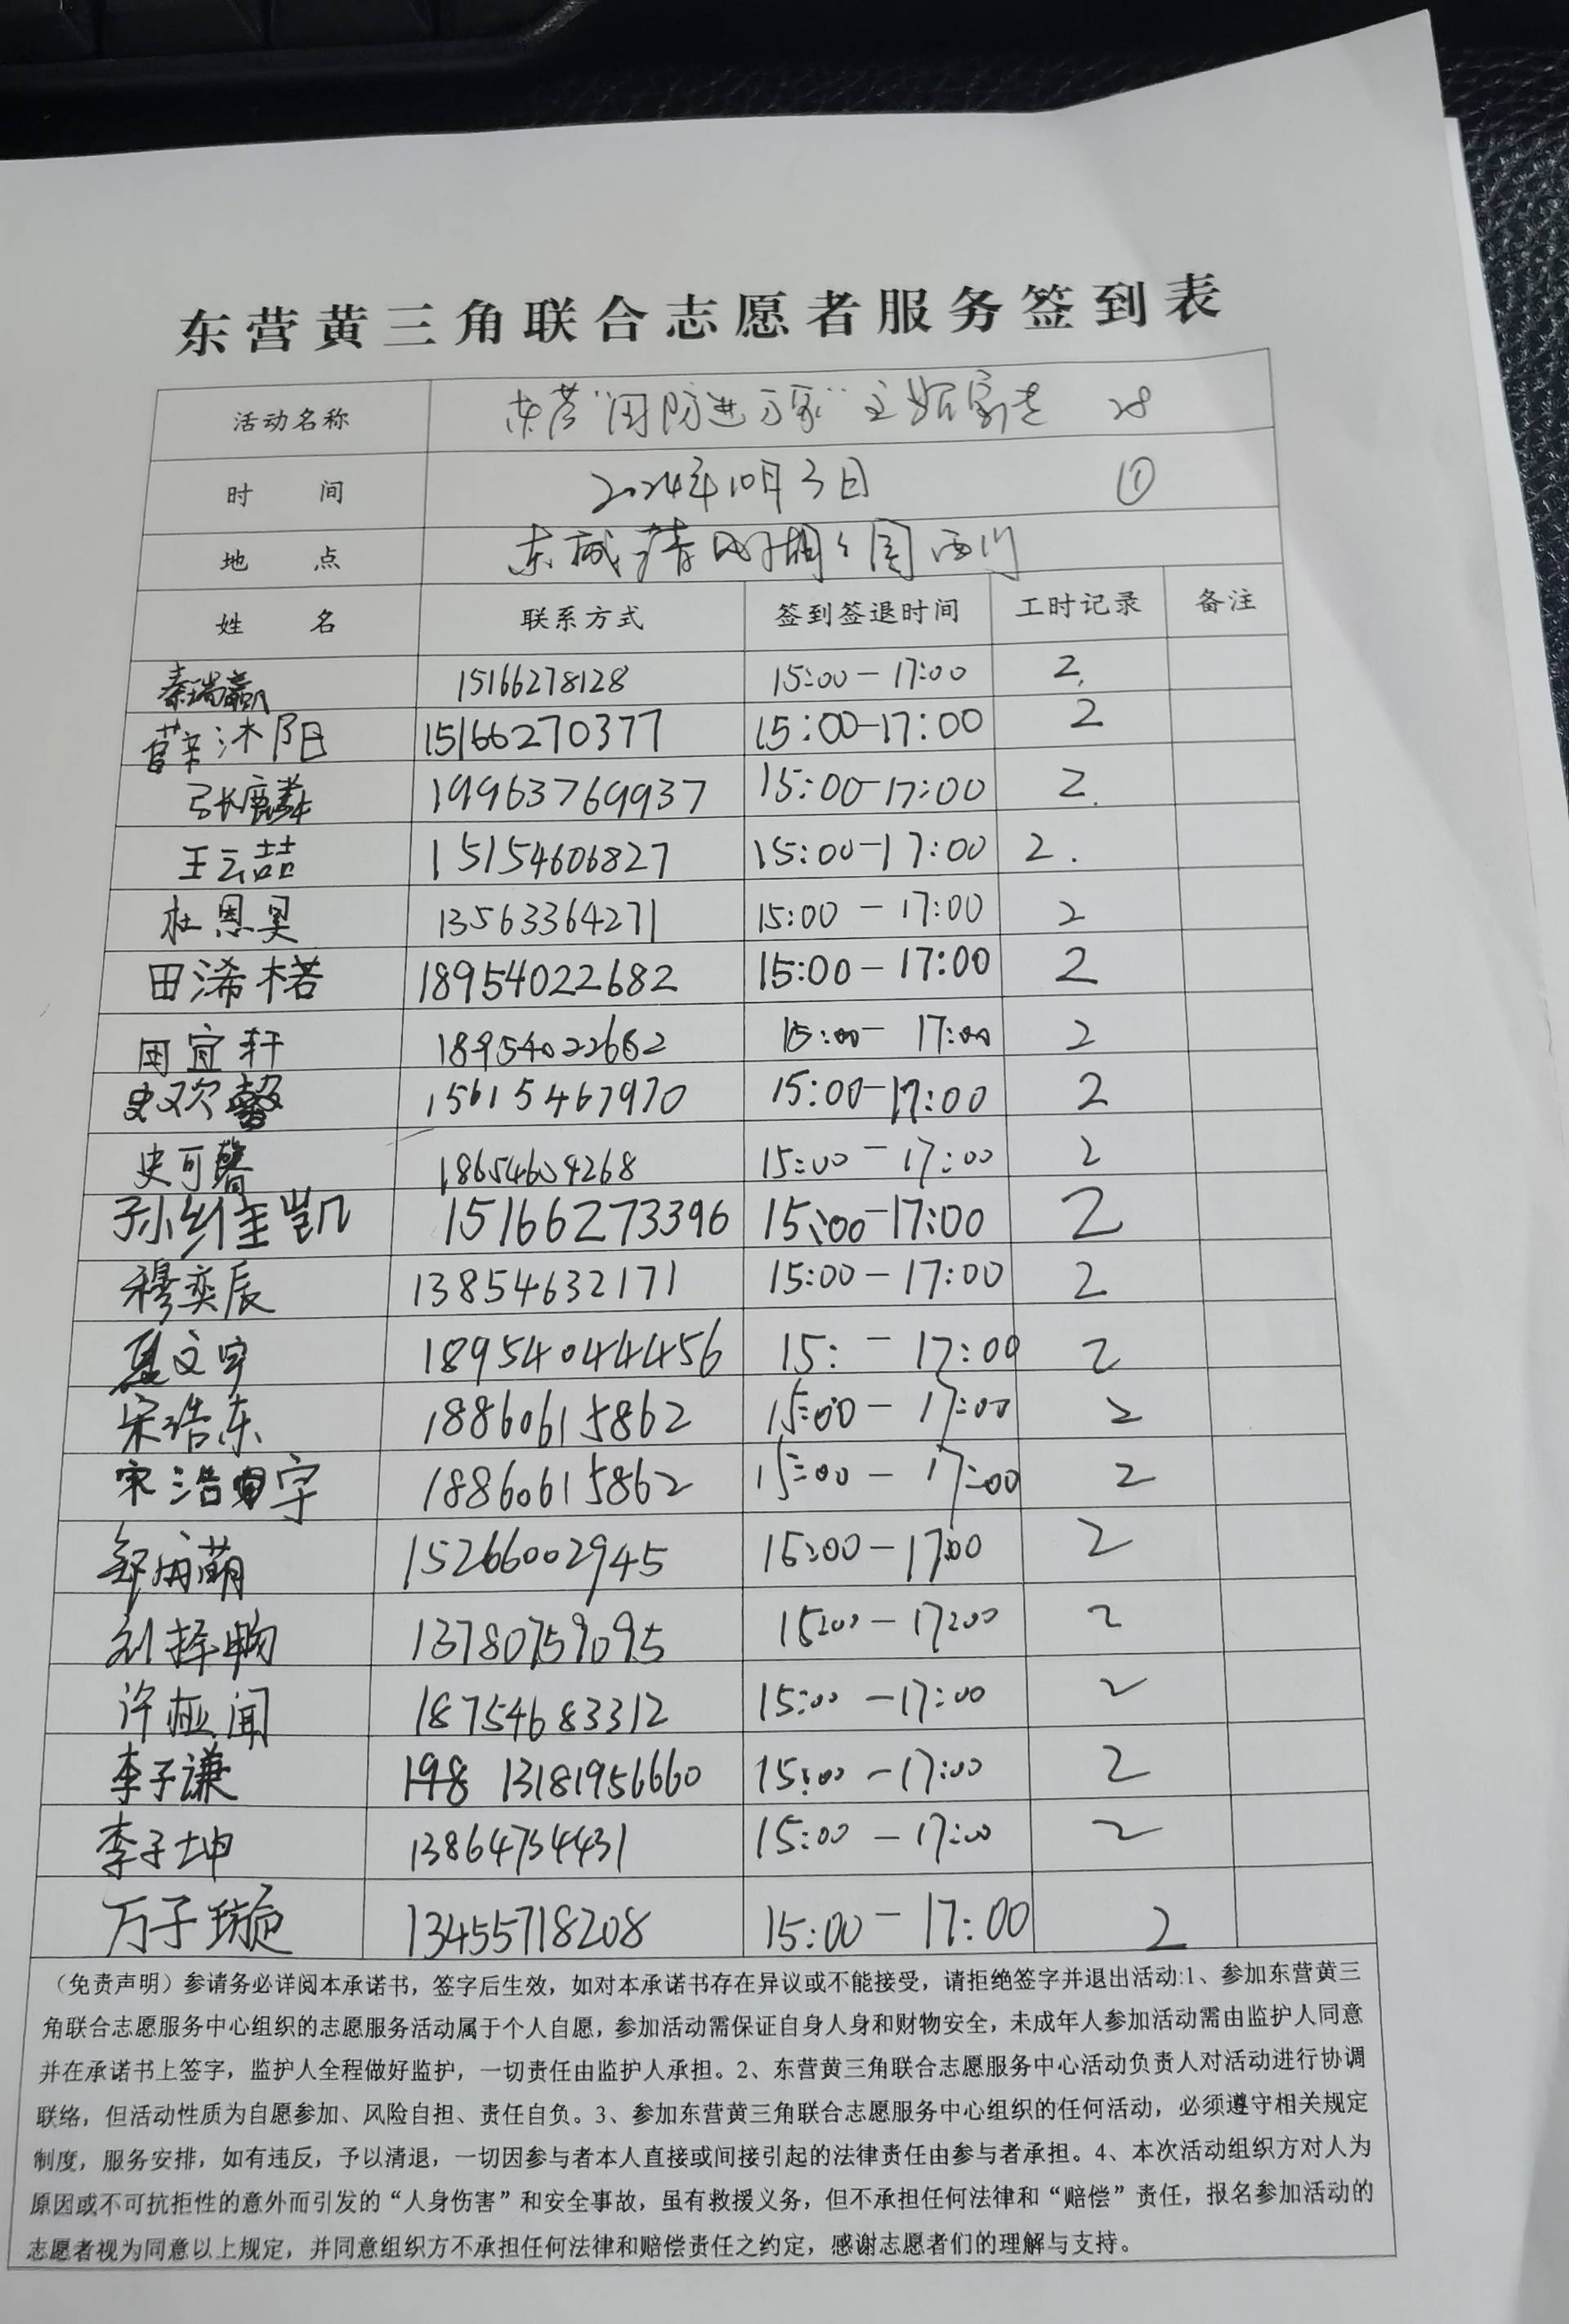 东营黄三角联合志愿者服务签到表
活动名称 东营“国防进万家”主题宣走 28
时 间 2024年10月3日 ①
地 点 东城 清风湖公园 西门
姓 名 联系方式 签到签退时间 工时记录 备注
秦瑞赢 15166278128 15:00-17:00 2.
薛沐阳 15166270377 15:00-17:00 2
张麟 19963769937 15:00-17:00 2.
王云喆 15154606827 15:00-17:00 2.
杜恩昊 13563364271 15:00-17:00 2
田浠楉 18954022682 15:00-17:00 2
田宜轩 18954022682 15:00-17:00 2
史欢馨 15615467970 15:00-17:00 2
史可馨 18654604268 15:00-17:00 2
孙维凯 15166273396 15:00-17:00 2
穆奕辰 13854632171 15:00-17:00 2
文宇 18954044456 15: -17:00 2
宋浩东 18860615862 15:00-17:00 2
宋浩宇 18860615862 15:00-17:00 2
萌 15266002945 15:00-17:00 2
刘择畅 13780759095 15:00-17:00 2
许桠闻 18754683312 15:00-17:00 2
李子谦 198 13181956660 15:00-17:00 2
李子坤 13864754431 15:00-17:00 2
万子璇 13455718208 15:00-17:00 2
（免责声明）参请务必详阅本承诺书，签字后生效，如对本承诺书存在异议或不能接受，请拒绝签字并退出活动:1、参加东营黄三
角联合志愿服务中心组织的志愿服务活动属于个人自愿，参加活动需保证自身人身和财物安全，未成年人参加活动需由监护人同意
并在承诺书上签字，监护人全程做好监护，一切责任由监护人承担。2、东营黄三角联合志愿服务中心活动负责人对活动进行协调
联络，但活动性质为自愿参加、风险自担、责任自负。3、参加东营黄三角联合志愿服务中心组织的任何活动，必须遵守相关规定
制度，服务安排，如有违反，予以清退，一切因参与者本人直接或间接引起的法律责任由参与者承担。4、本次活动组织方对人为
原因或不可抗拒性的意外而引发的“人身伤害”和安全事故，虽有救援义务，但不承担任何法律和“赔偿”责任，报名参加活动的
志愿者视为同意以上规定，并同意组织方不承担任何法律和赔偿责任之约定，感谢志愿者们的理解与支持。